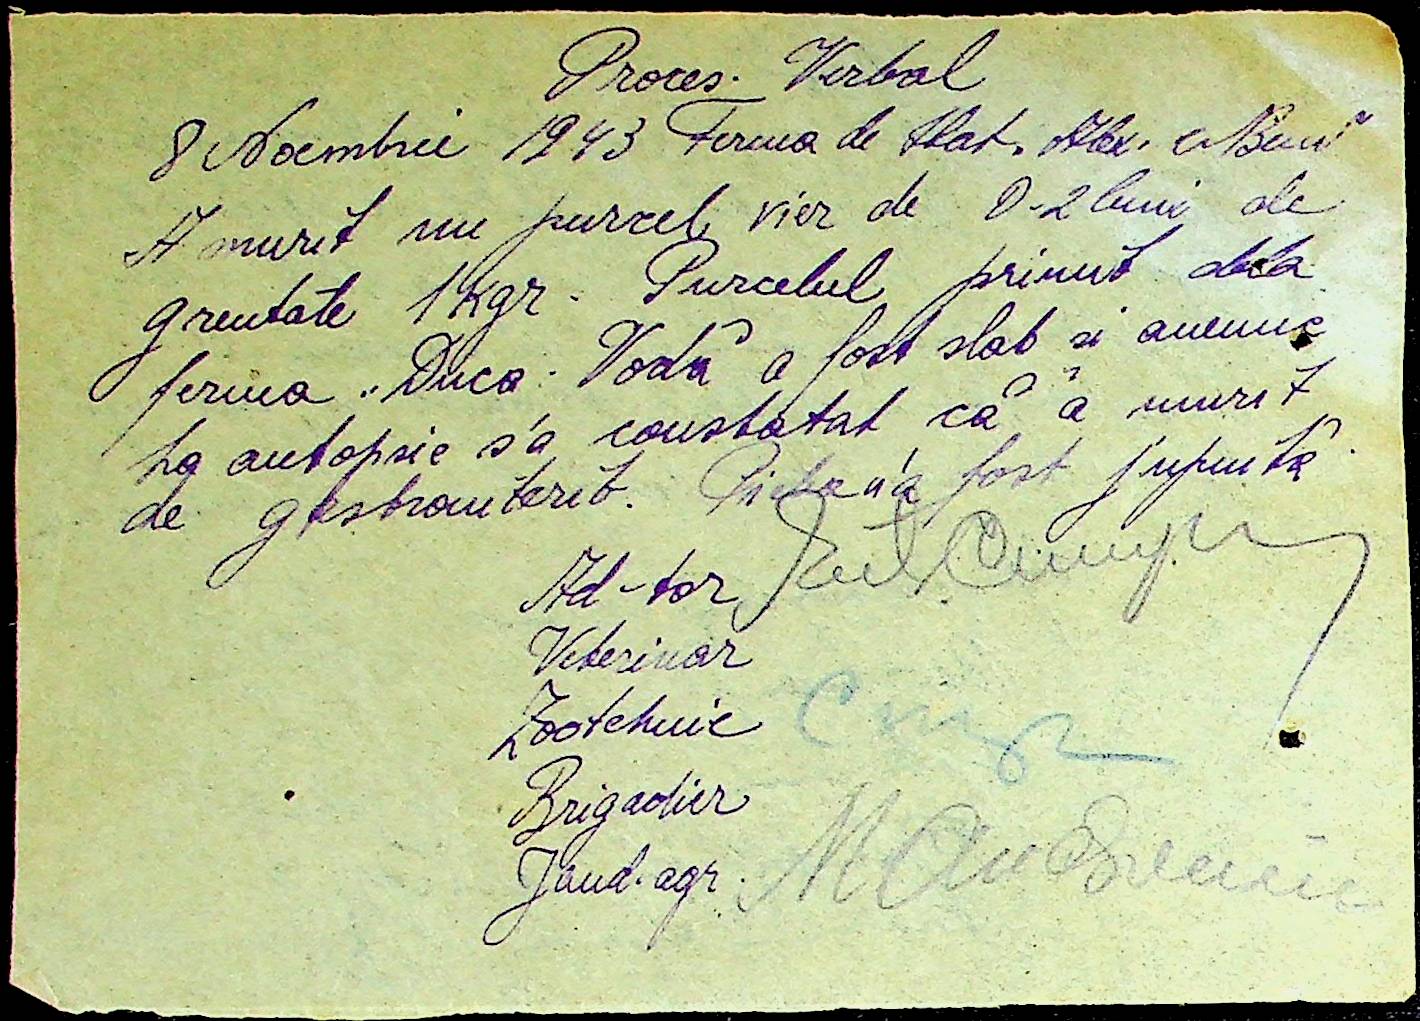 Proces-Verbal
8 Noembrie 1943 Ferma de Stat. Alex. cel Bun"
A murit un purcel, vier de 0-2 luni de
greutate 1 kgr. Purcelul primit dela
ferma „Duca-Vodă" a fost slab si anemic
La autopsie s'a constatat că a murit
de gastroenterit. Pielea n'a fost jupuită.
Ad-tor
Veterinar
Zootehnic
Brigadier
Jand. agr.